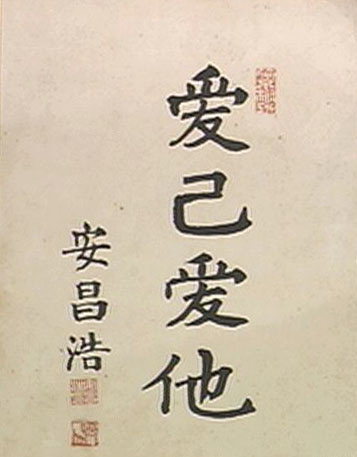 爱己爱他
安昌浩